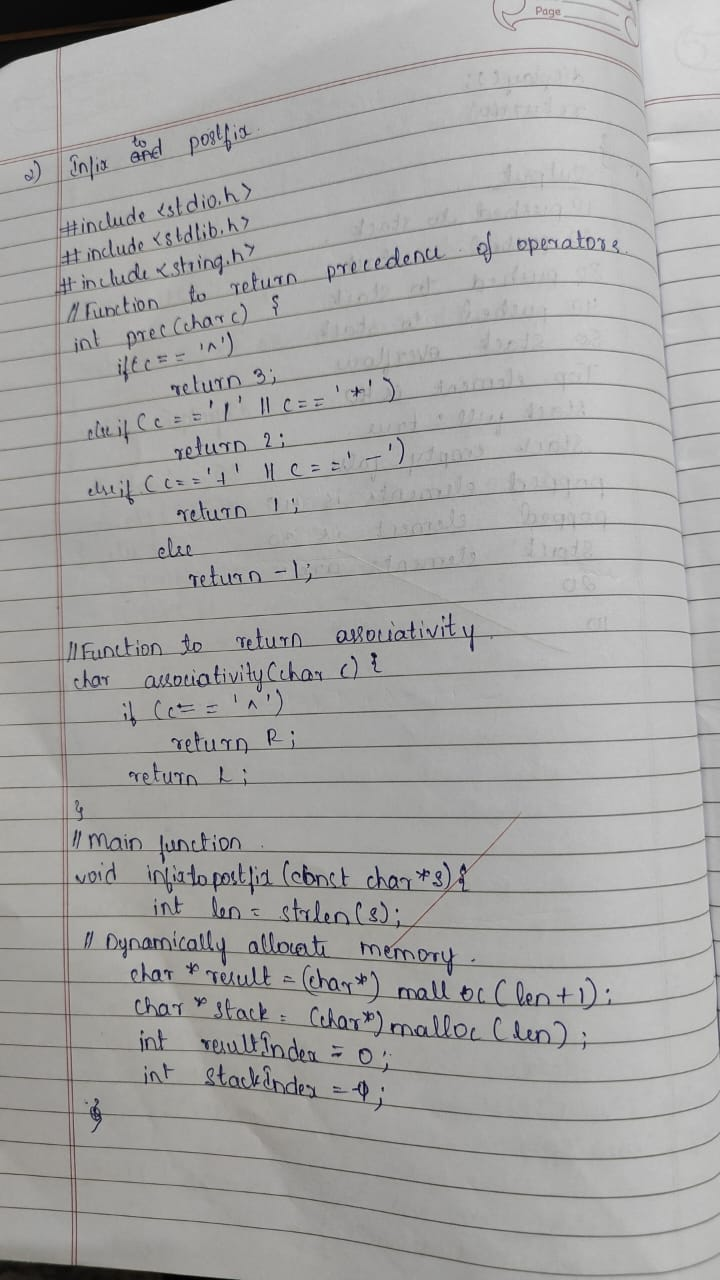 Page
2) Infix to and postfix.
#include <stdio.h>
#include <stdlib.h>
#include <string.h>
// Function to return precedence of operators.
int prec(char c) {
if(c == '^')
return 3;
else if (c == '/' || c == '*')
return 2;
else if (c == '+' || c == '-')
return 1;
else
return -1;
// Function to return associativity.
char associativity(char c) {
if (c == '^')
return R;
return L;
}
// Main function.
void infixtopostfix (const char *s) {
int len = strlen(s);
// Dynamically allocate memory.
char * result = (char*) malloc (len+1);
char * stack = (char*) malloc (len);
int resultIndex = 0;
int stackIndex = -1;